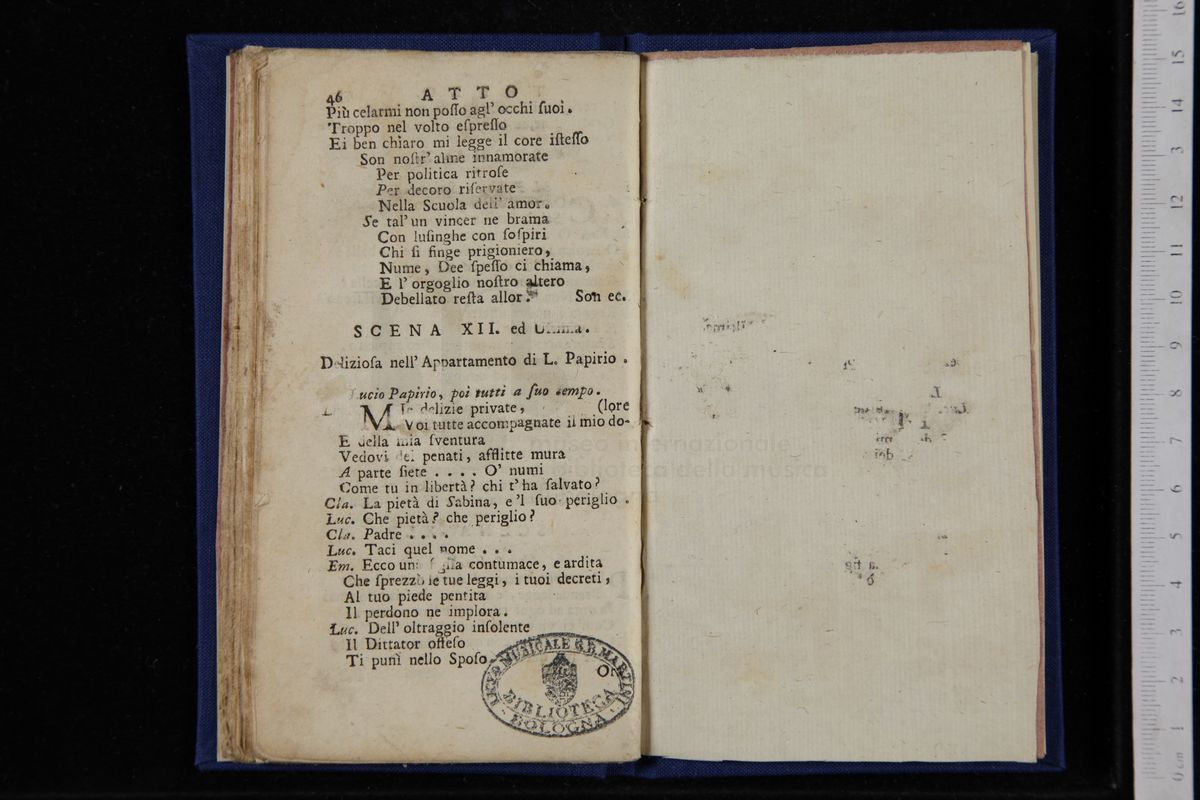 46 ATTO
Più celarmi non poſſo agl' occhi ſuoi.
Troppo nel volto eſpreſſo
Ei ben chiaro mi legge il core iſteſſo
Son noſtr' alme innamorate
Per politica ritroſe
Per decoro riſervate
Nella Scuola dell' amor.
Se tal' un vincer ne brama
Con luſinghe con ſoſpiri
Chi ſi finge prigioniero,
Nume, Dee ſpeſſo ci chiama,
E l' orgoglio noſtro altero
Debellato reſta allor. Son ec.
SCENA XII. ed Ultima.
Delizioſa nell' Appartamento di L. Papirio.
Lucio Papirio, poi tutti a ſuo tempo.
L. Mie delizie private, (lore
Voi tutte accompagnate il mio do-
E della mia ſventura
Vedovi dei penati, afflitte mura
A parte ſiete .... O' numi
Come tu in libertà? chi t' ha ſalvato?
Cla. La pietà di Sabina, e 'l ſuo periglio.
Luc. Che pietà? che periglio?
Cla. Padre ....
Luc. Taci quel nome ...
Em. Ecco una figlia contumace, e ardita
Che ſprezzò le tue leggi, i tuoi decreti,
Al tuo piede pentita
Il perdono ne implora.
Luc. Dell' oltraggio inſolente
Il Dittator offeſo
Ti punì nello Spoſo.
LICEO MUSICALE G.B. MARTINI
BIBLIOTECA
BOLOGNA
museo internazionale
biblioteca della musica
16
15
14
3
12
10
9
8
7
6
5
4
3
2
1
0 cm